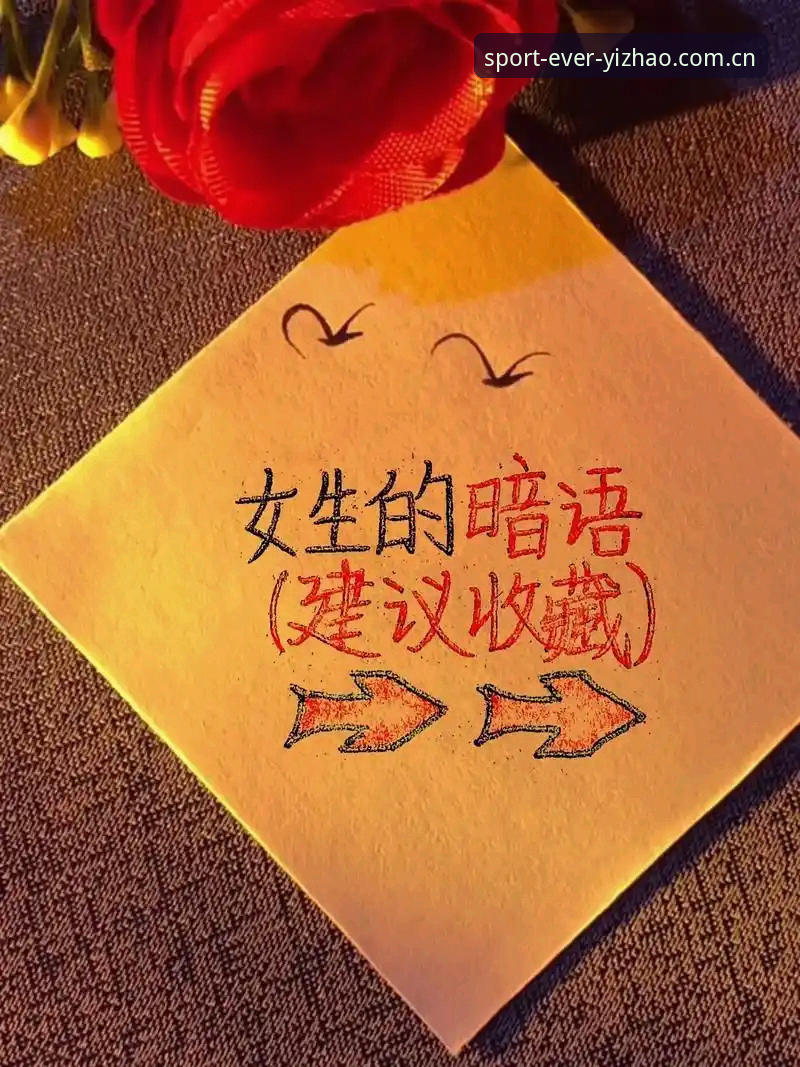 sport-ever-yizhao.com.cn
女生的暗语
(建议收藏)